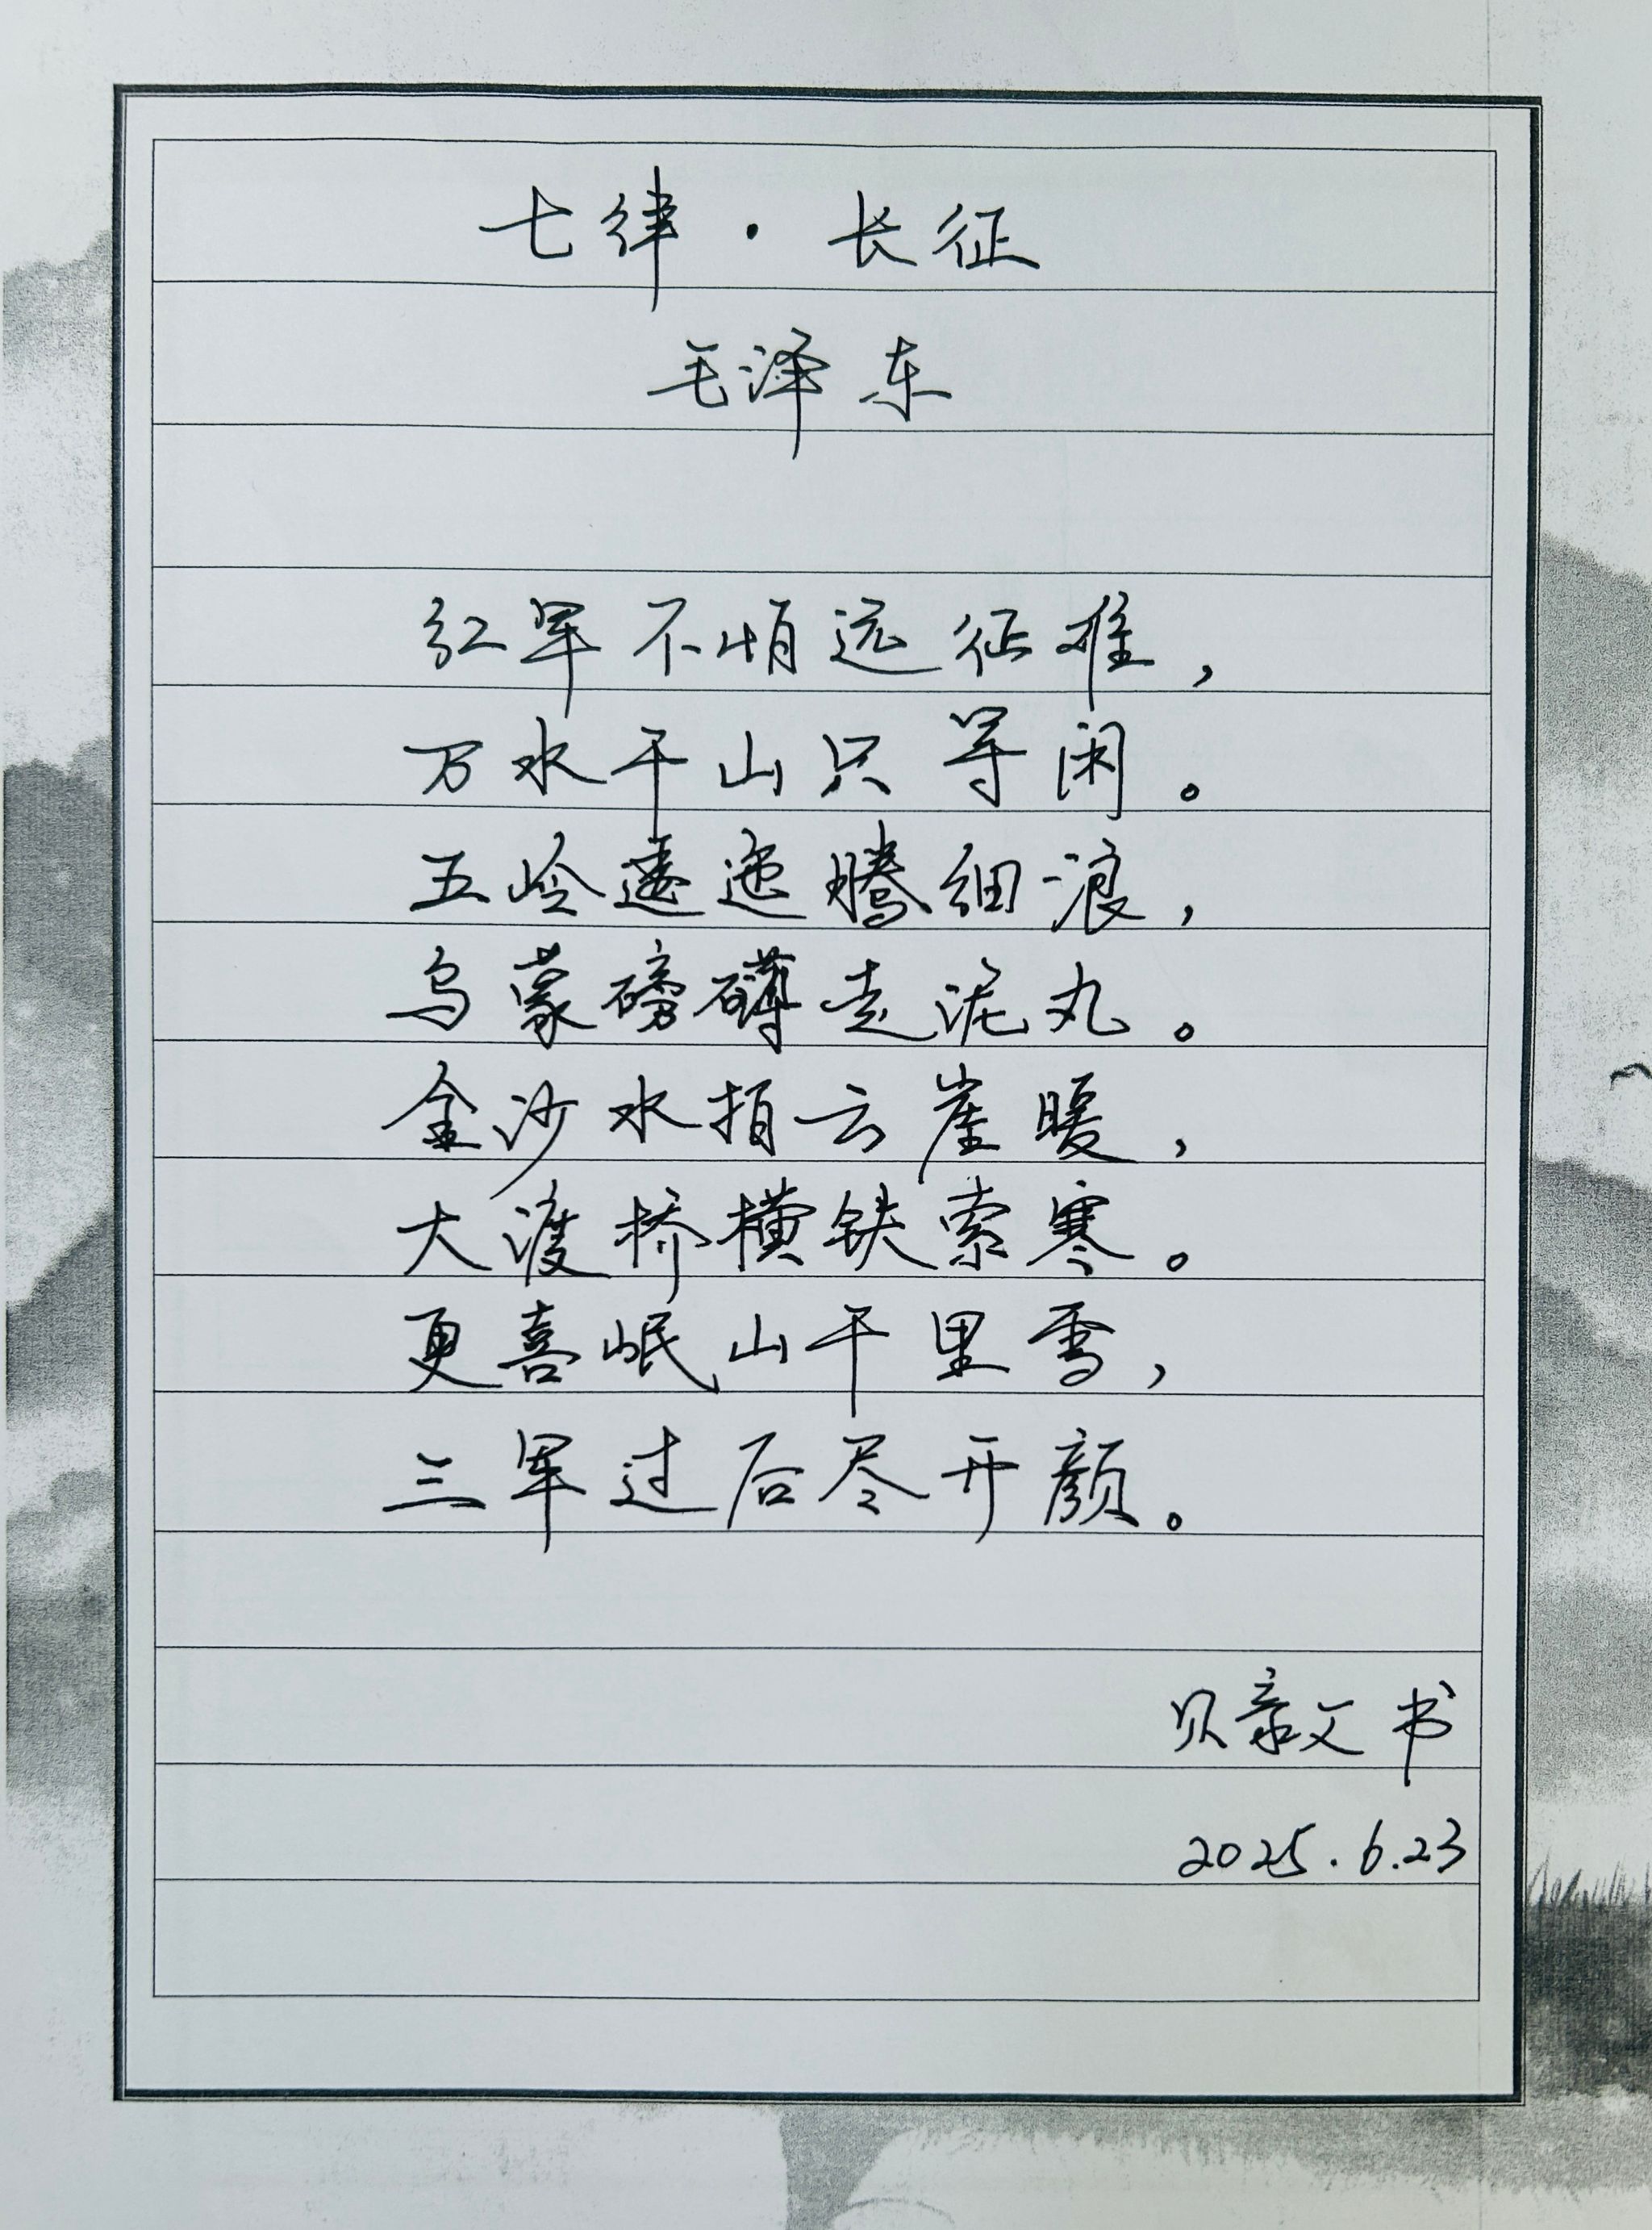 七律·长征
毛泽东
红军不怕远征难，
万水千山只等闲。
五岭逶迤腾细浪，
乌蒙磅礴走泥丸。
金沙水拍云崖暖，
大渡桥横铁索寒。
更喜岷山千里雪，
三军过后尽开颜。
贝 文书
2025.6.23